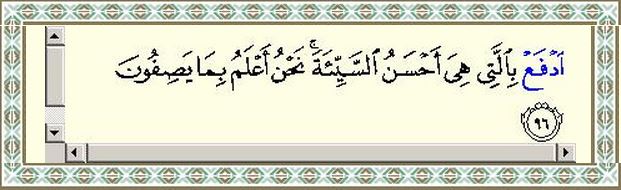 ٱدْفَعْ بِٱلَّتِى هِىَ أَحْسَنُ ٱلسَّيِّئَةَ ۚ نَحْنُ أَعْلَمُ بِمَا يَصِفُونَ
٩٦